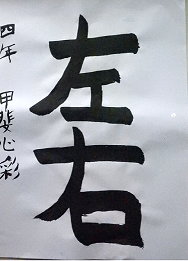 左右
四年 甲斐心彩